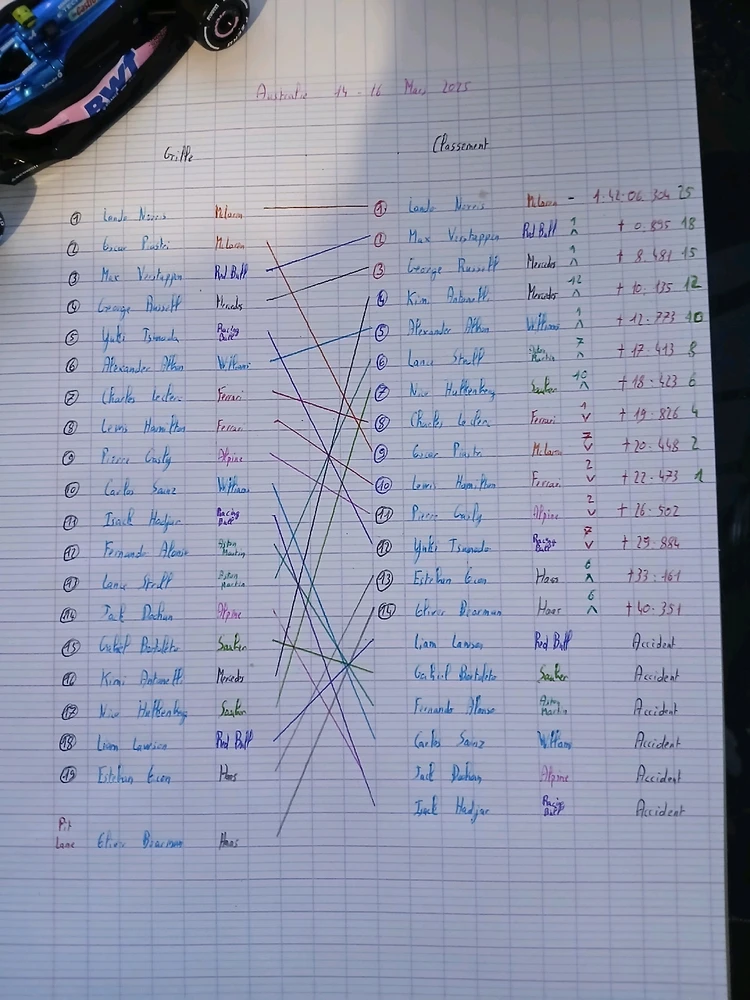 BWT
Australie 14 - 16 Mars 2025
Grille
Classement
1 Lando Norris McLaren
2 Oscar Piastri McLaren
3 Max Verstappen Red Bull
4 George Russell Mercedes
5 Yuki Tsunoda Racing Bull
6 Alexander Albon Williams
7 Charles Leclerc Ferrari
8 Lewis Hamilton Ferrari
9 Pierre Gasly Alpine
10 Carlos Sainz Williams
11 Isack Hadjar Racing Bull
12 Fernando Alonso Aston Martin
13 Lance Stroll Aston Martin
14 Jack Doohan Alpine
15 Gabriel Bortoleto Sauber
16 Kimi Antonelli Mercedes
17 Nico Hulkenberg Sauber
18 Liam Lawson Red Bull
19 Esteban Ocon Haas
Pit Lane Oliver Bearman Haas
1 Lando Norris McLaren - 1:42:06.304 25
2 Max Verstappen Red Bull 1 ^ + 0.895 18
3 George Russell Mercedes 1 ^ + 8.481 15
4 Kimi Antonelli Mercedes 12 ^ + 10.135 12
5 Alexander Albon Williams 1 ^ + 12.773 10
6 Lance Stroll Aston Martin 7 ^ + 17.413 8
7 Nico Hulkenberg Sauber 10 ^ + 18.423 6
8 Charles Leclerc Ferrari 1 v + 19.826 4
9 Oscar Piastri McLaren 7 v + 20.448 2
10 Lewis Hamilton Ferrari 2 v + 22.473 1
11 Pierre Gasly Alpine 2 v + 26.502
12 Yuki Tsunoda Racing Bull 7 v + 29.884
13 Esteban Ocon Haas 6 ^ +33.161
14 Oliver Bearman Haas 6 ^ + 40.351
Liam Lawson Red Bull Accident
Gabriel Bortoleto Sauber Accident
Fernando Alonso Aston Martin Accident
Carlos Sainz Williams Accident
Jack Doohan Alpine Accident
Isack Hadjar Racing Bull Accident